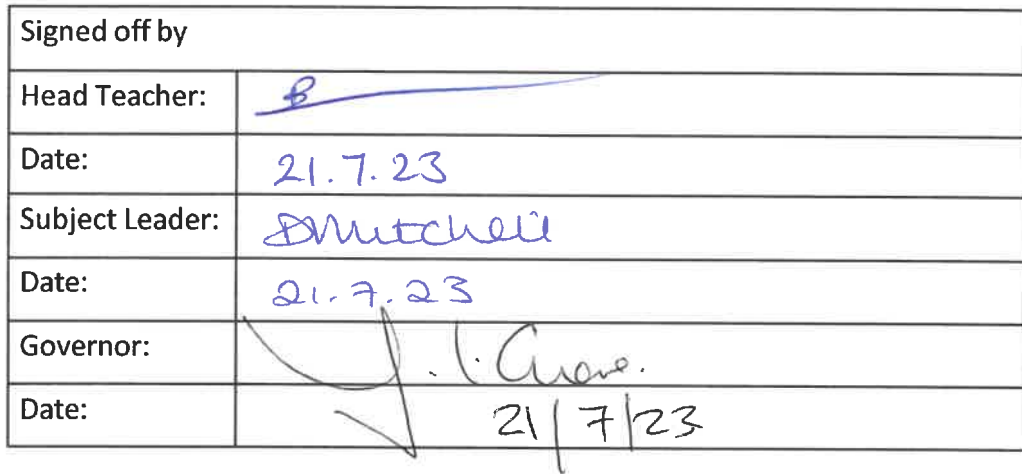 Signed off by
Head Teacher:
Date: 21.7.23
Subject Leader: DMitchell
Date: 21.7.23
Governor:
Date: 21/7/23